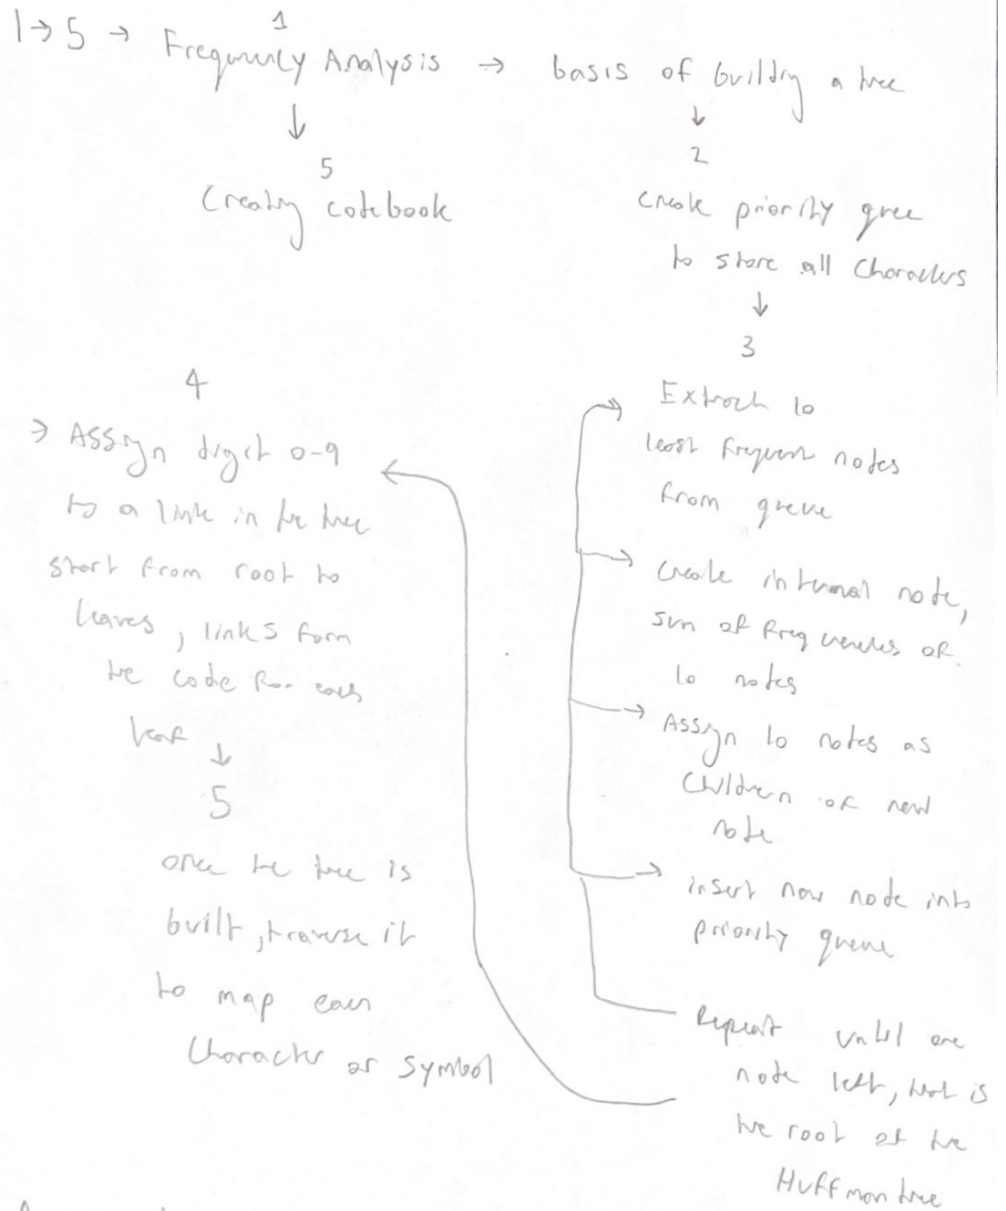 1→5 → Frequency Analysis → basis of building a tree
1
↓
5
Creating codebook
↓
2
create priority queue
to store all characters
↓
3
Extract 10
least frequent nodes
from queue
→ create internal node,
sum of frequencies of
10 nodes
→ Assign 10 nodes as
children of new
node
→ insert new node into
priority queue
Repeat until one
node left, that is
the root of the
Huffman tree
4
→ Assign digit 0-9
to a link in the tree
start from root to
leaves, links form
the code for each
leaf ↓
5
once the tree is
built, traverse it
to map each
character or symbol